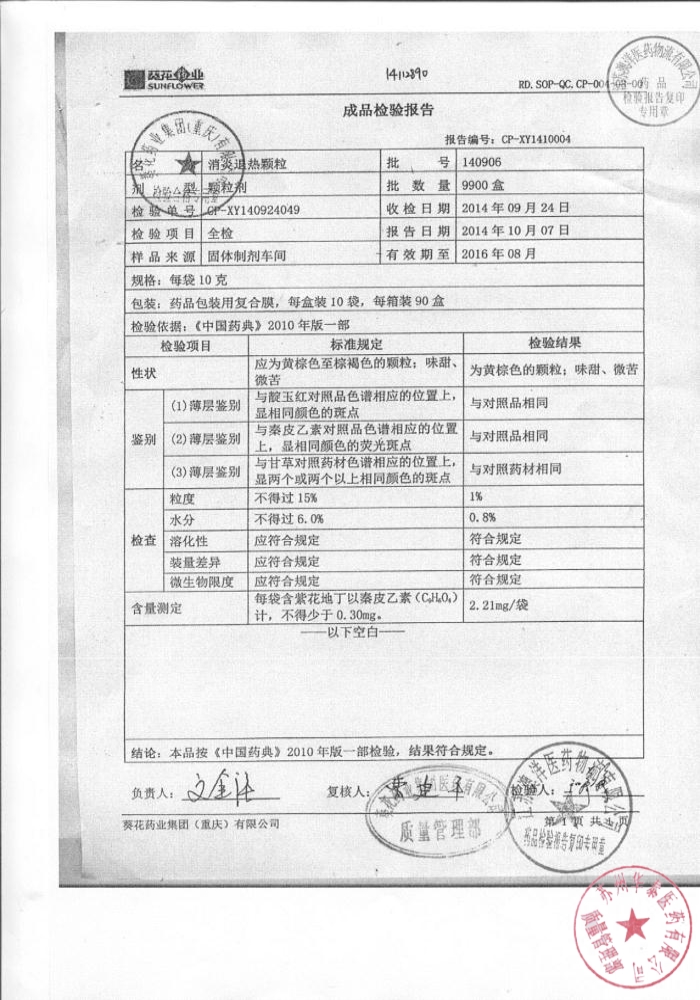 葵花药业
SUNFLOWER
14112890
RD.SOP-QC.CP-004-03-00
药品
检验报告复印
专用章
成品检验报告
报告编号：CP-XY1410004
名 消炎退热颗粒 批号 140906
剂型 颗粒剂 批数量 9900盒
检验单号 CP-XY140924049 收检日期 2014年09月24日
检验项目 全检 报告日期 2014年10月07日
样品来源 固体制剂车间 有效期至 2016年08月
规格：每袋10克
包装：药品包装用复合膜，每盒装10袋，每箱装90盒
检验依据：《中国药典》2010年版一部
检验项目 标准规定 检验结果
性状 应为黄棕色至棕褐色的颗粒；味甜、微苦 为黄棕色的颗粒；味甜、微苦
鉴别 (1)薄层鉴别 与靛玉红对照品色谱相应的位置上，显相同颜色的斑点 与对照品相同
(2)薄层鉴别 与秦皮乙素对照品色谱相应的位置上，显相同颜色的荧光斑点 与对照品相同
(3)薄层鉴别 与甘草对照药材色谱相应的位置上，显两个或两个以上相同颜色的斑点 与对照药材相同
检查 粒度 不得过15% 1%
水分 不得过6.0% 0.8%
溶化性 应符合规定 符合规定
装量差异 应符合规定 符合规定
微生物限度 应符合规定 符合规定
含量测定 每袋含紫花地丁以秦皮乙素（C₉H₆O₄）计，不得少于0.30mg。 2.21mg/袋
——以下空白——
结论：本品按《中国药典》2010年版一部检验，结果符合规定。
负责人： 复核人： 检验人：
葵花药业集团（重庆）有限公司 第1页 共1页
质量管理部
药品检验报告复印专用章
苏州华泰医药有限公司
质量管理部